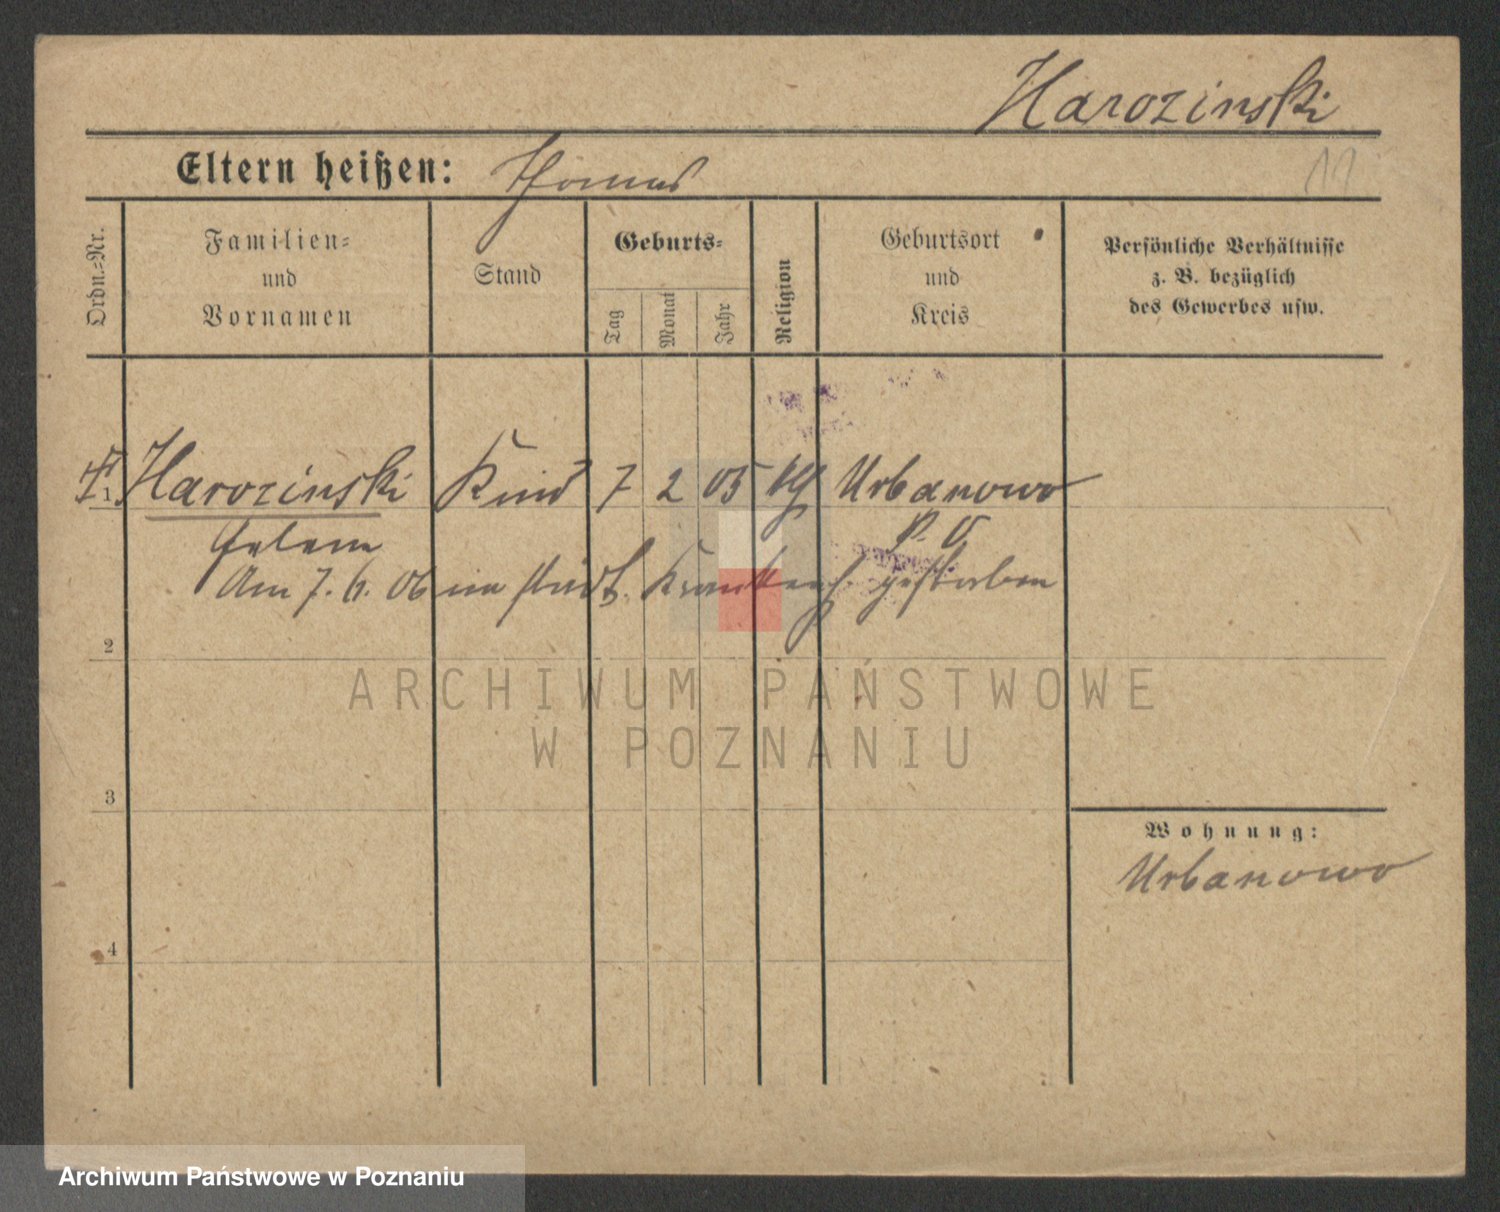 Harozinski
Eltern heißen: Thomas
11
Ordn.=Nr.
Familien=
und
Vornamen
Stand
Geburts=
Tag
Monat
Jahr
Religion
Geburtsort
und
Kreis
Persönliche Verhältnisse
z. B. bezüglich
des Gewerbes usw.
1 Harozinski Kind 7 2 05 kg Urbanowo
Helene P. O.
Am 7. 6. 06 im städt. Krankenh. gestorben
2
ARCHIWUM PAŃSTWOWE
W POZNANIU
3
Wohnung:
Urbanowo
4
Archiwum Państwowe w Poznaniu